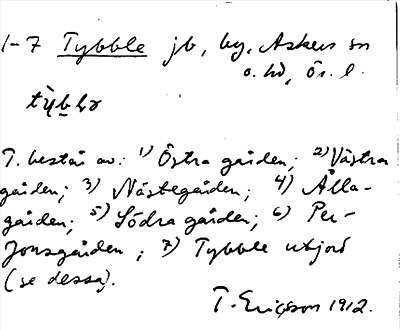 1-7 Tybble jb, by, Askers sn
o. hd, Ör. l.
tỳbḷə
T. består av: 1) Östra gården; 2) Västra
gården; 3) Nästegården; 4) Ålla-
gården; 5) Södra gården; 6) Per-
Jonsgården; 7) Tybble utjord
(se dessa).
T. Ericsson 1912.